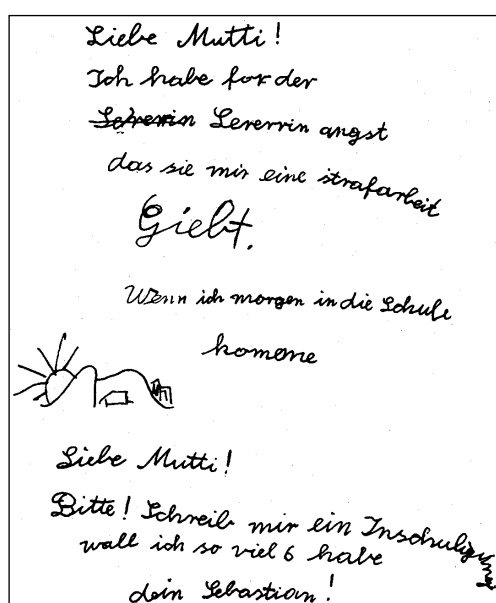 Liebe Mutti!
Ich habe for der
Leherin Lererrin angst
das sie mir eine strafarbeit
Giebt.
Wenn ich morgen in die Schule
komme
Liebe Mutti!
Bitte! Schreib mir ein
wall ich so viel 6 habe
dein Sebastian!